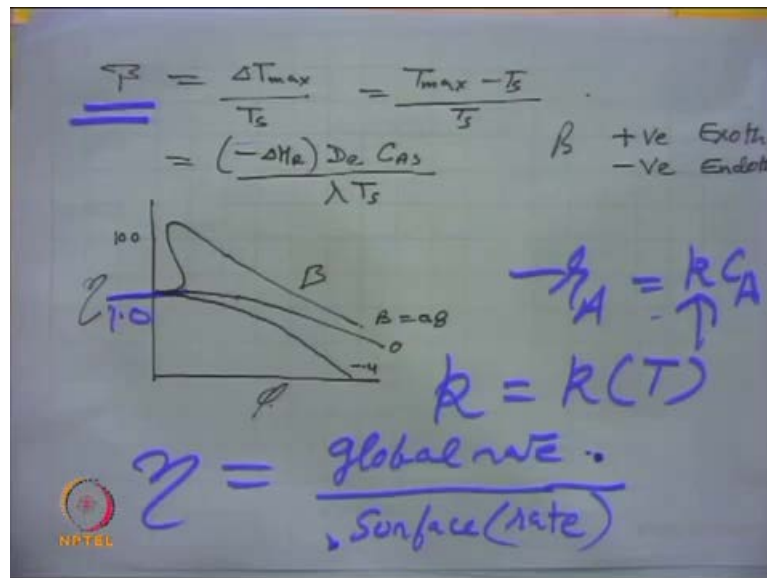 β = ΔTmax / Ts = Tmax - Ts / Ts .
= (-ΔHR) De CAs / λ Ts
β +ve Exoth
-ve Endoth
100
η 1.0
β
β = 0.8
0
-.4
φ
-rA = k CA
k = k(T)
η = global rate . / surface (rate)
NPTEL